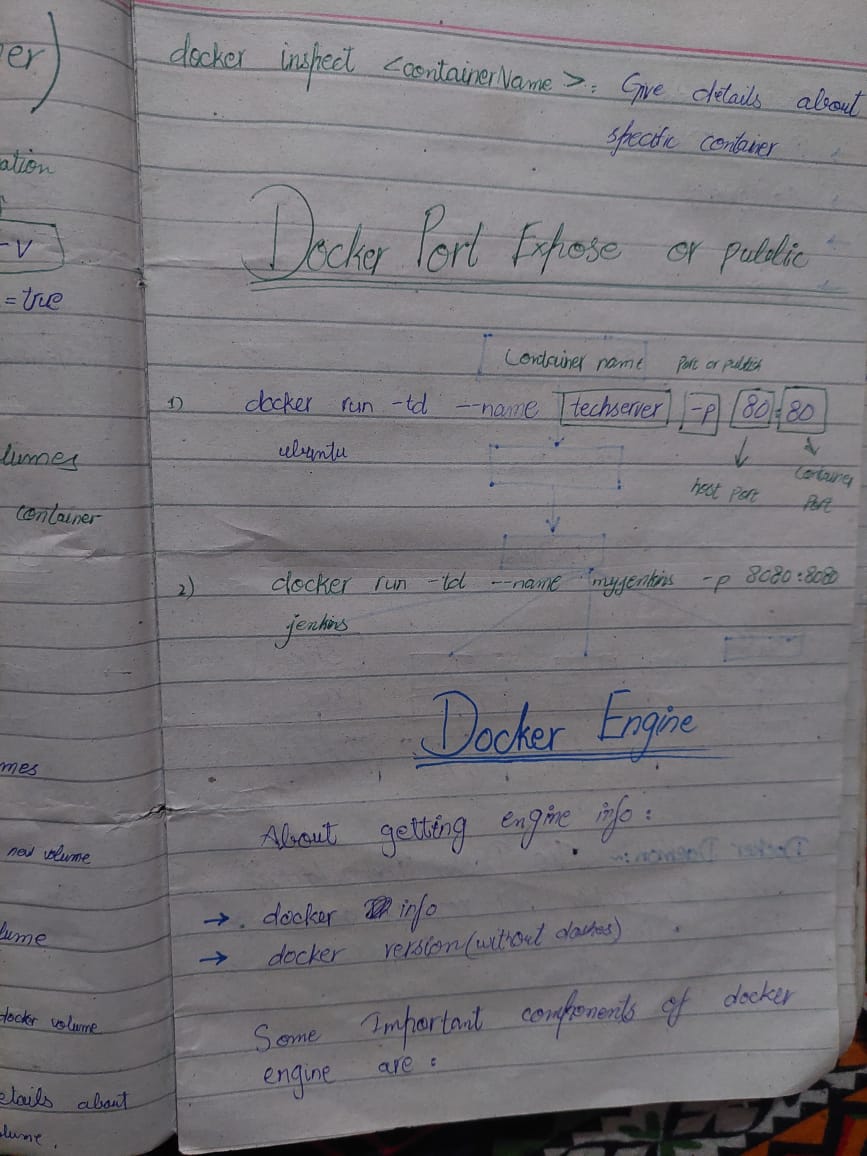 er)
ation
-v
= true
lumes
container
mes
new volume
lume
docker volume
etails about
lume.
docker inspect <containerName>: Give details about
specific container
Docker Port Expose or publlic
Container name Port or publish
1) docker run -td --name techserver -p 80:80
ubuntu
host Port
Container
Port
2) docker run -td --name myjenkins -p 8080:8080
jenkins
Docker Engine
About getting engine info:
→. docker info
→ docker version (without dashes)
Some Important components of docker
engine are: